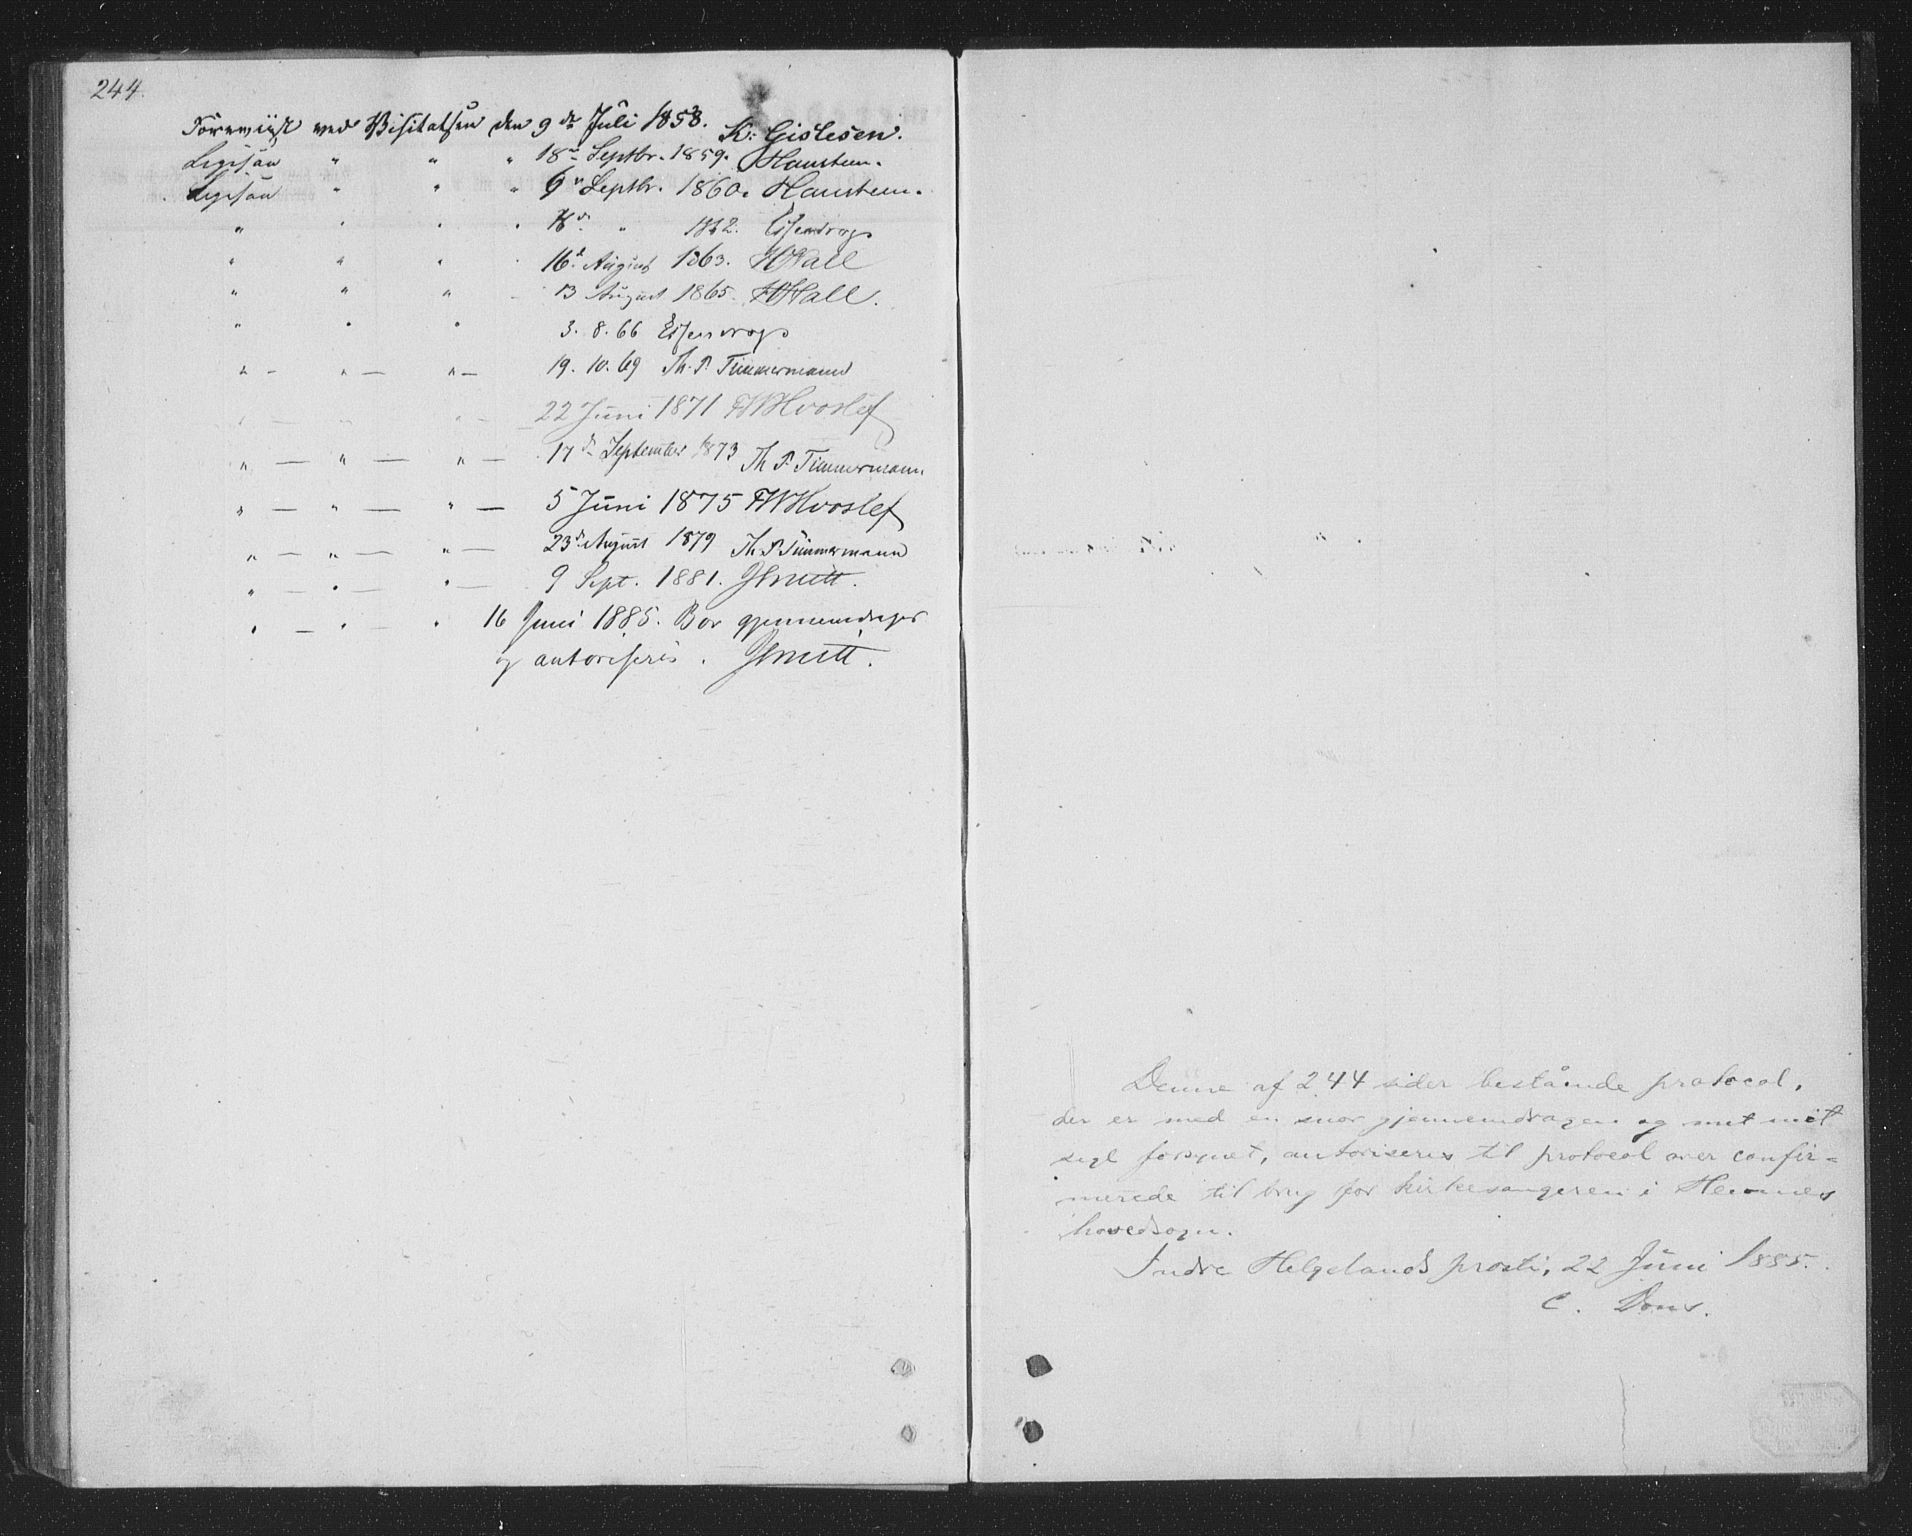 244.
Foreviist ved Visitatsen den 9de Juli 1858. K: Gislesen.
Ligesaa " " " 18de Septbr. 1859. Hansteen.
Ligesaa " " " 6te Septbr. 1860. Hansteen.
" " " " 18de " 1862.
" " " " 16d August 1863. HWall
" " " 13 August 1865. HWall.
" " " 3. 8. 66
" — " — " — 19. 10. 69 Th. P. Timmermann
22 Juni 1871 FWHvoslef
" — " — " — 17de September 1873 Th P. Timmermann
" — " — " — 5 Juni 1875 FWHvoslef
" — " — " — 23d August 1879 Th. P. Timmermann
" — " — " — 9 Sept. 1881. JSmitt.
" — " — " 16 Juni 1885. Bør gjennemdrages
og autoriseres. JSmitt.
Denne af 244 sider bestående protocol,
der er med en snor gjennemdragen og mit
segl forsynet, autoriseres til protocol over confir=
merede til brug for kirkesangeren i Hemnes
hovedsogn.
Indre Helgelands prosti, 22 Juni 1885.
C. Dons.